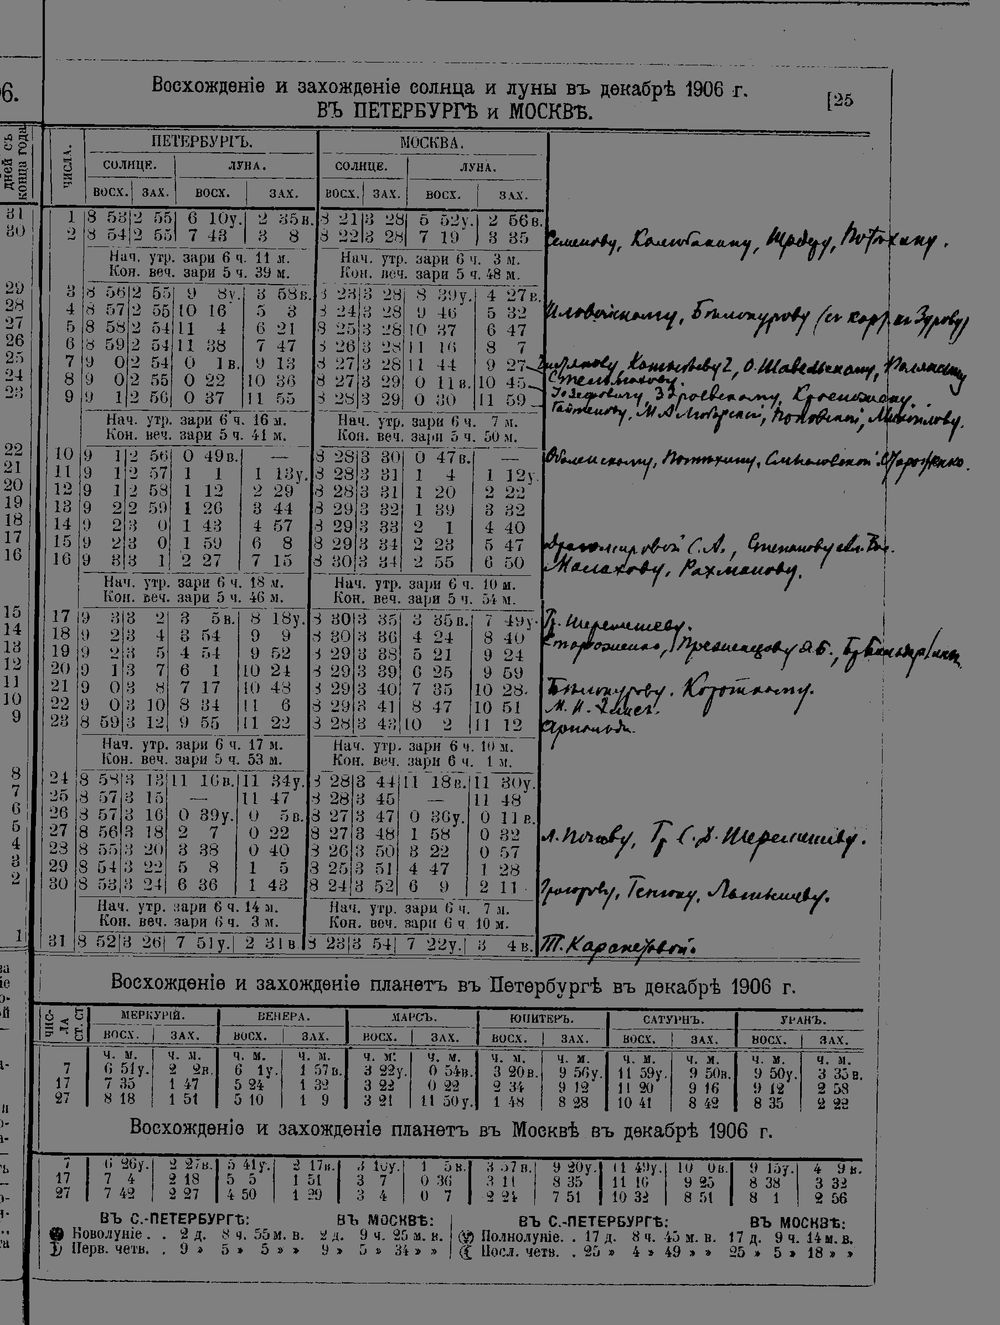 Восхожденіе и захожденіе солнца и луны въ декабрѣ 1906 г.
ВЪ ПЕТЕРБУРГѢ и МОСКВѢ.
[25
6.
дней съ конца года
ЧИСЛА.
ПЕТЕРБУРГЪ. МОСКВА.
СОЛНЦЕ. ЛУНА. СОЛНЦЕ. ЛУНА.
ВОСХ. ЗАХ. ВОСХ. ЗАХ. ВОСХ. ЗАХ. ВОСХ. ЗАХ.
31 1 8 53 2 55 6 10у. 2 35в. 8 21 3 28 5 52у. 2 56в.
30 2 8 54 2 55 7 43 3 8 8 22 3 28 7 19 3 35 Семенову,
Нач. утр. зари 6 ч. 11 м. Нач. утр. зари 6 ч. 3 м.
Кон. веч. зари 5 ч. 39 м. Кон. веч. зари 5 ч. 48 м.
29 3 8 56 2 55 9 8у. 3 58в. 8 23 3 28 8 39у. 4 27в.
28 4 8 57 2 55 10 16 5 3 8 24 3 28 9 46 5 32 Иловайскому, Бѣлокурову
27 5 8 58 2 54 11 4 6 21 8 25 3 28 10 37 6 47
26 6 8 59 2 54 11 38 7 47 8 26 3 28 11 16 8 7
25 7 9 0 2 54 0 1в. 9 13 8 27 3 28 11 44 9 27
24 8 9 0 2 55 0 22 10 36 8 27 3 29 0 11в. 10 45
23 9 9 1 2 56 0 37 11 55 8 28 3 29 0 30 11 59
Нач. утр. зари 6 ч. 16 м. Нач. утр. зари 6 ч. 7 м.
Кон. веч. зари 5 ч. 41 м. Кон. веч. зари 5 ч. 50 м.
22 10 9 1 2 56 0 49в. — 8 28 3 30 0 47в. — Оболенскому,
21 11 9 1 2 57 1 1 1 13у. 8 28 3 31 1 4 1 12у.
20 12 9 1 2 58 1 12 2 29 8 28 3 31 1 20 2 22
19 13 9 2 2 59 1 26 3 44 8 29 3 32 1 39 3 32
18 14 9 2 3 0 1 43 4 57 8 29 3 33 2 1 4 40
17 15 9 2 3 0 1 59 6 8 8 29 3 34 2 23 5 47 Драгомировой С. А., Степанову
16 16 9 3 3 1 2 27 7 15 8 30 3 34 2 55 6 50 Малахову, Рахманову.
Нач. утр. зари 6 ч. 18 м. Нач. утр. зари 6 ч. 10 м.
Кон. веч. зари 5 ч. 46 м. Кон. веч. зари 5 ч. 54 м.
15 17 9 3 3 2 3 5в. 8 18у. 8 30 3 35 3 35в. 7 49у. Гр. Шереметеву.
14 18 9 2 3 4 3 54 9 9 8 30 3 36 4 24 8 40 Стороженко,
13 19 9 2 3 5 4 54 9 52 8 29 3 38 5 21 9 24
12 20 9 1 3 7 6 1 10 24 8 29 3 39 6 25 9 59
11 21 9 0 3 8 7 17 10 48 8 29 3 40 7 35 10 28 Бѣлокурову. Короткому.
10 22 9 0 3 10 8 34 11 6 8 29 3 41 8 47 10 51
9 23 8 59 3 12 9 55 11 22 8 28 3 43 10 2 11 12 Арнольди.
Нач. утр. зари 6 ч. 17 м. Нач. утр. зари 6 ч. 10 м.
Кон. веч. зари 5 ч. 53 м. Кон. веч. зари 6 ч. 1 м.
8 24 8 58 3 13 11 16в. 11 34у. 8 28 3 44 11 18в. 11 30у.
7 25 8 57 3 15 — 11 47 8 28 3 45 — 11 48
6 26 8 57 3 16 0 39у. 0 5в. 8 27 3 47 0 36у. 0 11в.
5 27 8 56 3 18 2 7 0 22 8 27 3 48 1 58 0 32 Гр. С. Д. Шереметеву.
4 28 8 55 3 20 3 38 0 40 8 26 3 50 3 22 0 57
3 29 8 54 3 22 5 8 1 5 8 25 3 51 4 47 1 28
2 30 8 53 3 24 6 36 1 43 8 24 3 52 6 9 2 11 Латышеву.
Нач. утр. зари 6 ч. 14 м. Нач. утр. зари 6 ч. 7 м.
Кон. веч. зари 6 ч. 3 м. Кон. веч. зари 6 ч. 10 м.
1 31 8 52 3 26 7 51у. 2 31в 8 23 3 54 7 22у. 3 4в. Т. Карапетовой.
Восхожденіе и захожденіе планетъ въ Петербургѣ въ декабрѣ 1906 г.
ЧИСЛА СТ. СТ МЕРКУРІЙ. ВЕНЕРА. МАРСЪ. ЮПИТЕРЪ. САТУРНЪ. УРАНЪ.
ВОСХ. ЗАХ. ВОСХ. ЗАХ. ВОСХ. ЗАХ. ВОСХ. ЗАХ. ВОСХ. ЗАХ. ВОСХ. ЗАХ.
ч. м. ч. м. ч. м. ч. м. ч. м. ч. м. ч. м. ч. м. ч. м. ч. м. ч. м. ч. м.
7 6 51у. 2 2в. 6 1у. 1 57в. 3 22у. 0 54в. 3 20в. 9 56у. 11 59у. 9 50в. 9 50у. 3 35в.
17 7 35 1 47 5 24 1 32 3 22 0 22 2 34 9 12 11 20 9 16 9 12 2 58
27 8 18 1 51 5 10 1 9 3 21 11 50у. 1 48 8 28 10 41 8 42 8 35 2 22
Восхожденіе и захожденіе планетъ въ Москвѣ въ декабрѣ 1906 г.
7 6 26у. 2 27в. 5 41у. 2 17в. 3 10у. 1 5в. 3 57в. 9 20у. 11 49у. 10 0в. 9 15у. 4 9в.
17 7 4 2 18 5 5 1 51 3 7 0 36 3 11 8 35 11 16 9 25 8 38 3 32
27 7 42 2 27 4 50 1 29 3 4 0 7 2 24 7 51 10 32 8 51 8 1 2 56
ВЪ С.-ПЕТЕРБУРГѢ: ВЪ МОСКВѢ: ВЪ С.-ПЕТЕРБУРГѢ: ВЪ МОСКВѢ:
Новолуніе . . 2 д. 8 ч. 55 м. в. 2 д. 9 ч. 25 м. в. Полнолуніе. . 17 д. 8 ч. 45 м. в. 17 д. 9 ч. 14 м. в.
Перв. четв. . 9 » 5 » 5 » » 9 » 5 » 34 » » Посл. четв. . 25 » 4 » 49 » » 25 » 5 » 18 » »